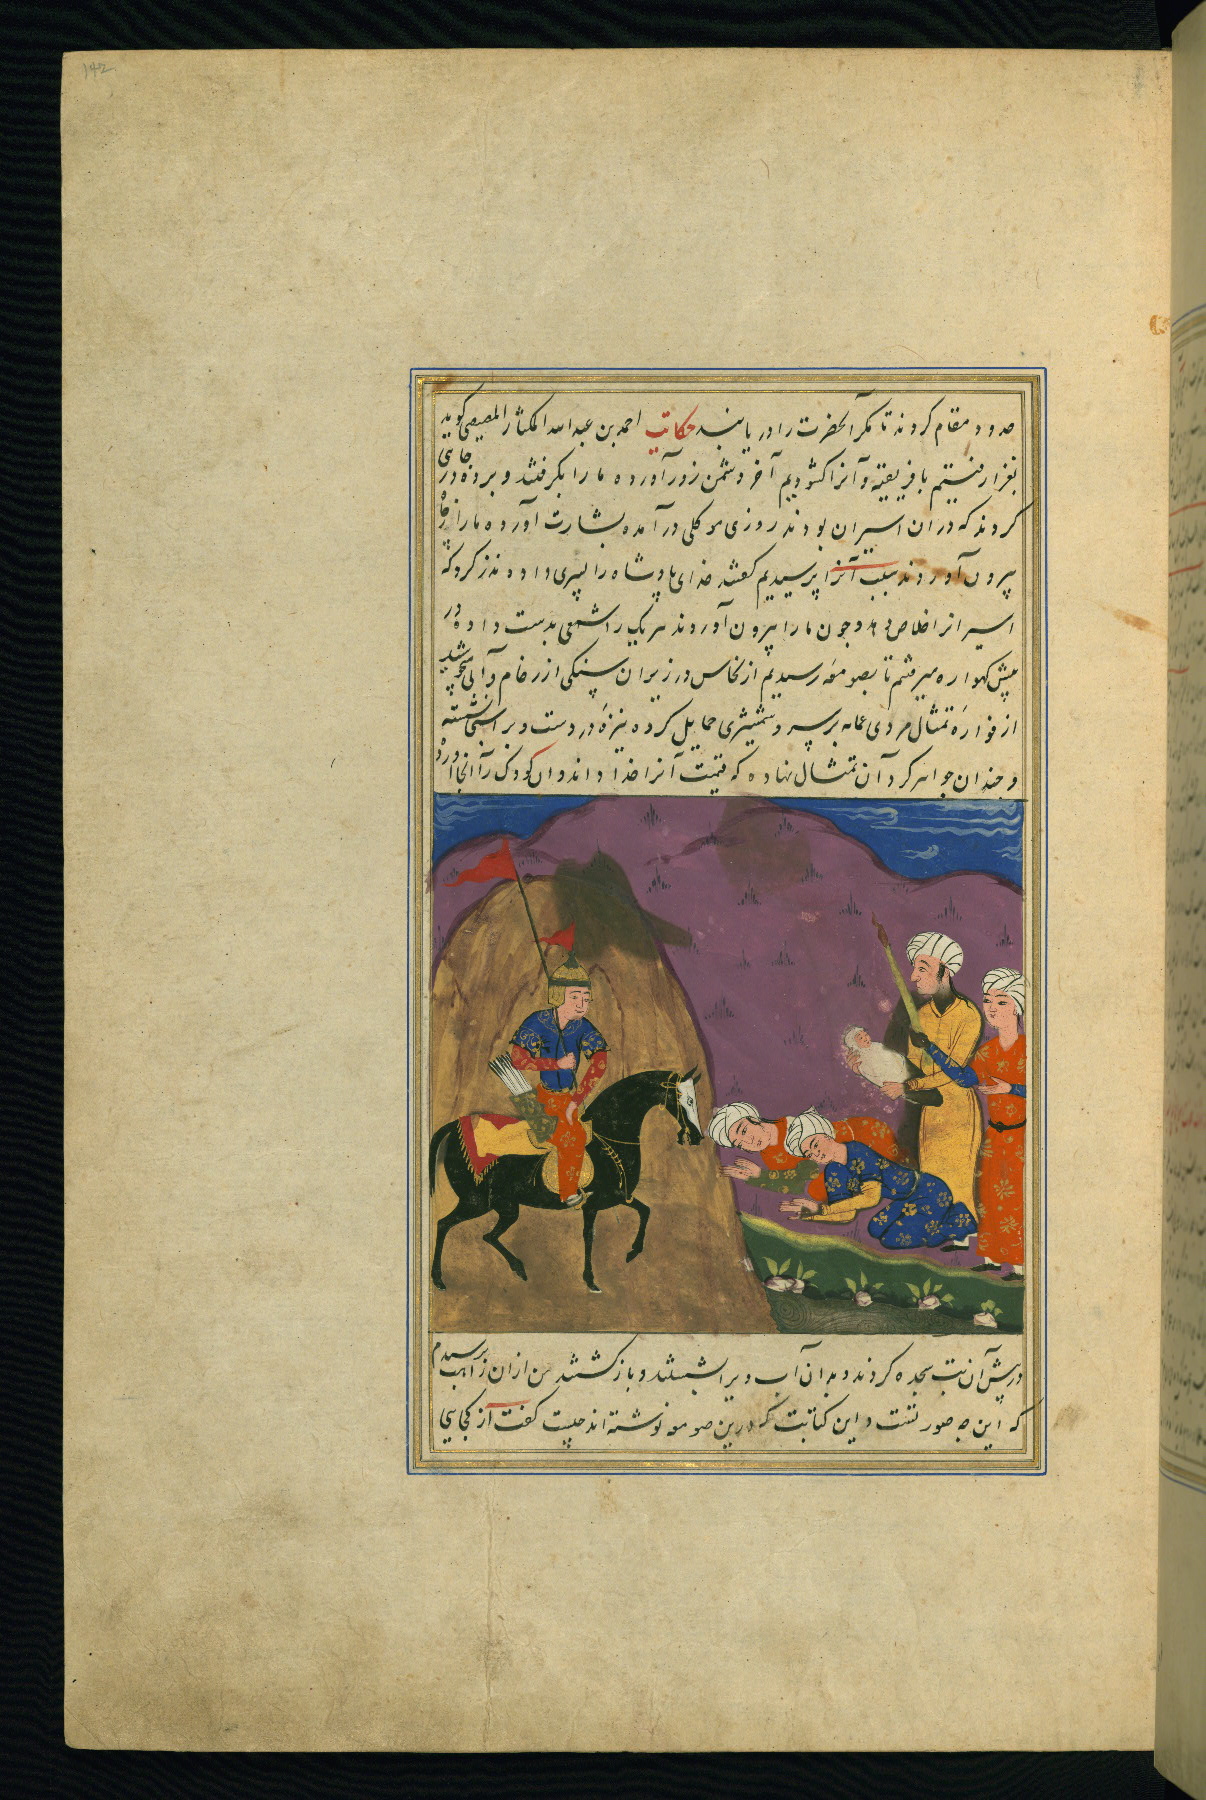 ۱۴۲
حدود مقام کردند تا مگر آنحضرت را دریابند حکایت احمد بن عبدالله المصیصی کوید
بغزا رفتیم بافریقیه و آنرا کشودیم آخر دشمن زور آورده ما را بکرفتند و برده در جایی
کردند که دران اسیران بودند روزی موکلی در آمده بشارت آورده ما را از چاه
بیرون آوردند سبب آنرا پرسیدیم کفتند خدای پادشاه را پسری داده نذر کرد که
اسیرانرا خلاص دهد و چون ما را بیرون آوردند هر یک را شمعی بدست داده در
پیش کهواره میرفتیم تا بصومعه رسیدیم از نحاس در زیر ان سنکی از رخام و آبی میجوشید
از فواره تمثال مردی عمامه بر سر و شمشیری حمایل کرده نیزه در دست و بر اسبی نشسته
و چندان جواهر کرد آن تمثال نهاده که قیمت آنرا خدا داند وان کودک را آنجا آورده
در پیش آن بت سجده کردند و بدان آب ویرا بشستند و باز کشتند من ازان راهب پرسیدم
که این چه صورتست و این کتابت که درین صومعه نوشته اند چیست کفت از کجایی